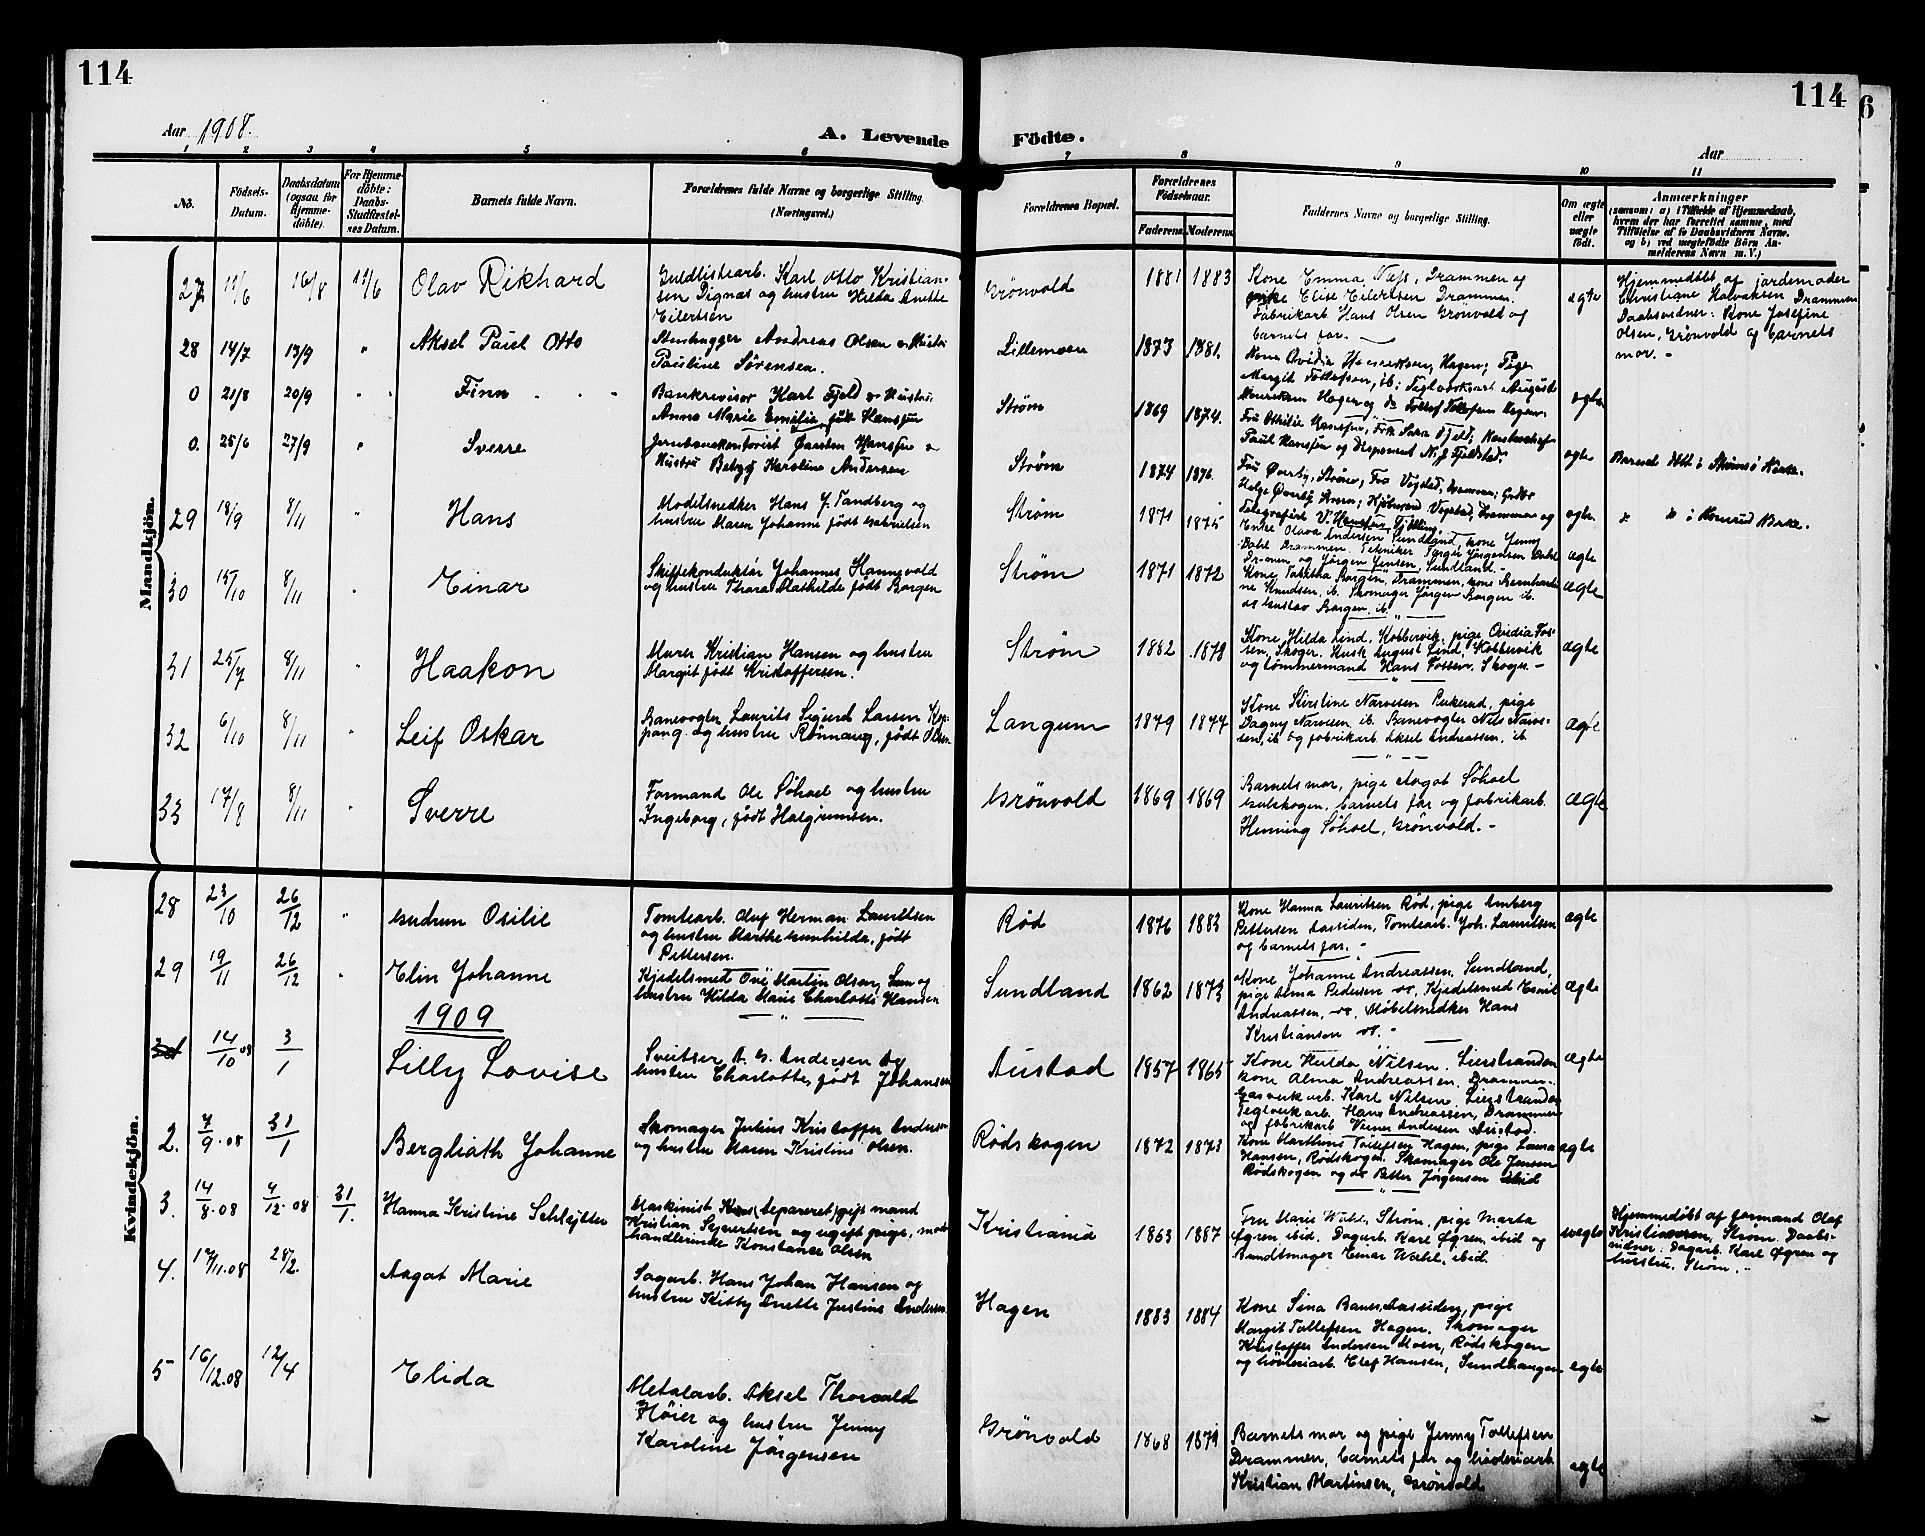 114
114
Aar 1908.
A. Levende Födte.
Aar
1 2 3 4 5 6 7 8 9 10 11
No.
Födsels-
Datum.
Daabsdatum
(ogsaa for
Hjemme-
döbte).
For Hjemme-
döbte:
Daabs-
Stadfæstel-
ses Datum.
Barnets fulde Navn.
Forældrenes fulde Navne og borgerlige Stilling.
(Næringsvei.)
Forældrenes Bopæl.
Forældrenes
Födselsaar.
Faderens. Moderens.
Faddernes Navne og borgerlige Stilling.
Om ægte
eller
uægte
født.
Anmærkninger
(saasom: a) i Tilfælde af Hjemmedaab,
hvem der har forrettet samme, med
Tilföielse af to Daabsvidners Navne,
og b) ved uægtefödte Börn An-
melderens Navn m. V.)
Mandkjön.
27 11/6 16/8 11/6 Olav Rikhard
Guldlistearb. Karl Otto Kristian-
sen Dignæs og hustru Hilda Anette
Eilertsen
Grönvold 1881 1883
Kone Emma Næss, Drammen og
pike Elise Eilertsen Drammen.
Fabrikarb. Hans Olsen Grönvold og
barnets far. —
ægte
Hjemmedöbt af jordemoder
Christiane Halvorsen Drammen
Daabsvidner: Kone Josefine
Olsen, Grönvold og barnets
mor. -
28 14/7 13/9 " Aksel Paul Otto
Stenhugger Andreas Olsen & Hustru
Pauline Sörensen.
Lillemoen 1873 1881.
Kone Ovidia Henriksen, Hagen; Pige
Margit Tollefsen, ib; Teglverksarb August
Henriksen Hagen og do Tollef Tollefsen Hagen.
ægte
0 21/8 20/9 " Finn
Bankrevisor Karl Fjeld & Hustru
Anna Marie Emilie født Hansen
Ström 1869 1874.
Fru Othilie Hansen, Frk Sara Fjeld; Kontorchef
Paul Hansen og Disponent N. J. Fjeldstad.
ægte
Barnet döbt i Strömsö Kirke.
0. 25/6 27/9 " Sverre
Jernbanekontorist Carsten Hansen &
Hustru Betzy Karoline Andersen
Ström 1874 1876.
Fru Överby, Strömsö, Fru Vegstad, Drammen;
Helge Överby
Telegrafist V. Hansen
ægte
" " i Kirke.
29 18/9 8/11 " Hans
Modelsnedker Hans J. Tandberg og
hustru Maren Johanne født Gabrielsen
Ström 1871 1875
Enke Olava Andersen Sundland, kone Jenny
Dahl Drammen. Tekniker Jörgensen Dahl
Drammen og Jörgen Jensen, Sundland. -
ægte
30 15/10 8/11 " Einar
Skiftekonduktör Johannes Hannevold
og hustru Thora Mathilde født Borgen
Ström 1871 1872
Kone Tabitha Borgen, Drammen, kone Bernhardi-
ne Knudsen, ib. Skomager Jörgen Borgen ib.
do Gustav Borgen, ib.
ægte
31 25/7 8/11 " Haakon
Murer Kristian Hansen og hustru
Margit født Kristoffersen.
Ström 1882 1879
Kone Hilda Lind, Kobbervik, pige Ovidia Fos-
sen, Skoger. Husk August Lind, Kobbervik
og tömmermand Hans Fossen, Skoger -
ægte
32 6/10 8/11 " Leif Oskar
Banevogter Laurits Sigurd Larsen Kop-
pang. og hustru Rönnaug, født Olsen
Langum 1879 1877
Kone Kirstine Narvesen Pukerud, pige
Dagny Narvesen ib. Banevogter Nils Narve-
sen, ib. og fabrikarb. Aksel Andreassen, ib.
ægte
33 17/8 8/11 " Sverre
Formand Ole Söhoel og hustru
Ingeborg, født Halgrimsen.
Grönvold 1869 1869
Barnets mor, pige Aagot Söhoel
Gulskogen, barnets far og fabrikarb.
Henning Söhoel, Grönvold. -
ægte
Kvindekjön.
28 23/10 26/12 " Gudrun Otilie
Tomtearb. Oluf Herman Lauritsen
og hustru Marthe Gunhilda, født
Pettersen.
Rød 1876 1883
Kone Hanna Lauritsen Rød, pige Amberg
Pettersen Aassiden, Tomtearb. Joh. Lauritsen
og barnets far. -
ægte
29 19/11 26/12 " Elin Johanne
Kjedelsmed Ove Martin Olsen, Lun og
hustru Hilda Marie Charlotte Hansen
Sundland 1862 1873
Kone Johanne Andreassen, Sundland,
pige Alma Pedersen st., Kjedelsmed
Andreassen, st. Møbelsnedker Hans
Kristiansen st. -
ægte
1909
14/10 08 3/1 Lilly Lovise
Sveitser A. G. Andersen og
hustru Charlotte, født Johansen
Austad 1857 1865
Kone Hulda Nilsen, Lierstranden
kone Alma Andreassen, Drammen.
Gasverkarb. Karl Nilsen Lierstranden
Teglverkarb. Hans Andreassen, Drammen
og fabrikarb. Verner Andersen Austad.
ægte
2. 7/9.08 31/1 Bergliath Johanne
Skomager Julius Kristoffer Andersen
og hustru Maren Kristine Olsen.
Rødskogen 1872 1873
Kone Marthine Tollefsen Hagen, pige Laura
Hansen, Rødskogen. Skomager Ole Jensen
Rødskogen og do Petter Jørgensen ibid
ægte
3. 14/8.08 4/12.08 31/1. Hanna Kristine Schlytter
Maskinist (separeret) gift mand
Kristian Syvertsen og ugift pige, mode-
handlerinde Konstance Olsen
Kristiania 1863 1887
Fru Marie Wahl, Strøm, pige Marta
Øgren ibid. Dagarb. Karl Øgren, ibid og
Bundtmager Einar Wahl, ibid.
uægte
Hjemmedøbt af formand Olaf
Kristiansen, Strøm. Daabs-
vidner: Dagarb. Karl Øgren og
hustru, Strøm. -
4. 17/11.08 28/2. Aagot Marie
Sagarb. Hans Johan Hansen og
hustru Kitty Anette Justine Andersen.
Hagen 1883 1884
Kone Sina Bauer, Aassiden, pige
Margit Tollefsen Hagen. Skomager
Kristoffer Andersen Moen, Rødskogen
og høvleriarb. Elef Hansen, Sundhaugen
ægte
5 16/12.08 12/4 Elida
Metalarb. Aksel Thorvald
Høier og hustru Jenny
Karoline Jørgensen
Grönvold 1868 1879
Barnets mor og pige Jenny Tollefsen
Drammen, barnets far og høvleriarb.
Kristian Martinsen, Grönvold
ægte